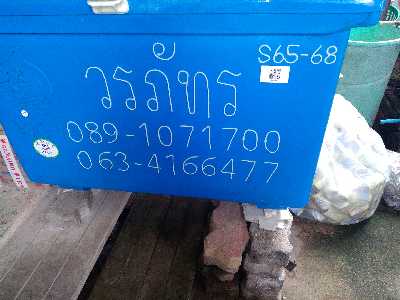 S65-68
วรภัทร
089-1071700
063-4166477